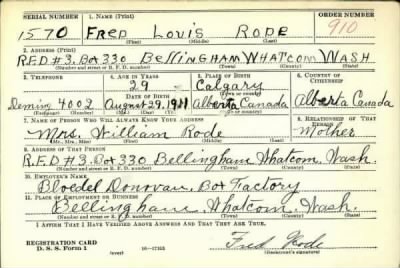 SERIAL NUMBER 1. NAME (Print) ORDER NUMBER
1570 FRED LOUIS RODE 910
(First) (Middle) (Last)
2. ADDRESS (Print)
R.F.D. #3. Box 330 BELLINGHAM WHATCOM WASH
(Number and street or R. F. D. number) (Town) (County) (State)
3. TELEPHONE 4. AGE IN YEARS 5. PLACE OF BIRTH 6. COUNTRY OF CITIZENSHIP
29 Calgary
DATE OF BIRTH (Town or county)
Deming 4002 August 29, 1911 Alberta Canada Alberta Canada
(Exchange) (Number) (Mo.) (Day) (Yr.) (State or country)
7. NAME OF PERSON WHO WILL ALWAYS KNOW YOUR ADDRESS 8. RELATIONSHIP OF THAT PERSON
Mrs. William Rode Mother
(Mr., Mrs., Miss) (First) (Middle) (Last)
9. ADDRESS OF THAT PERSON
R.F.D #3. Box 330 Bellingham Whatcom, Wash.
(Number and street or R. F. D. number) (Town) (County) (State)
10. EMPLOYER'S NAME
Bloedel Donovan, Box Factory
11. PLACE OF EMPLOYMENT OR BUSINESS
Bellingham, Whatcom, Wash.
(Number and street or R. F. D. number) (Town) (County) (State)
I AFFIRM THAT I HAVE VERIFIED ABOVE ANSWERS AND THAT THEY ARE TRUE.
REGISTRATION CARD
D. S. S. Form 1 (over) 16—17105 Fred Rode
(Registrant's signature)